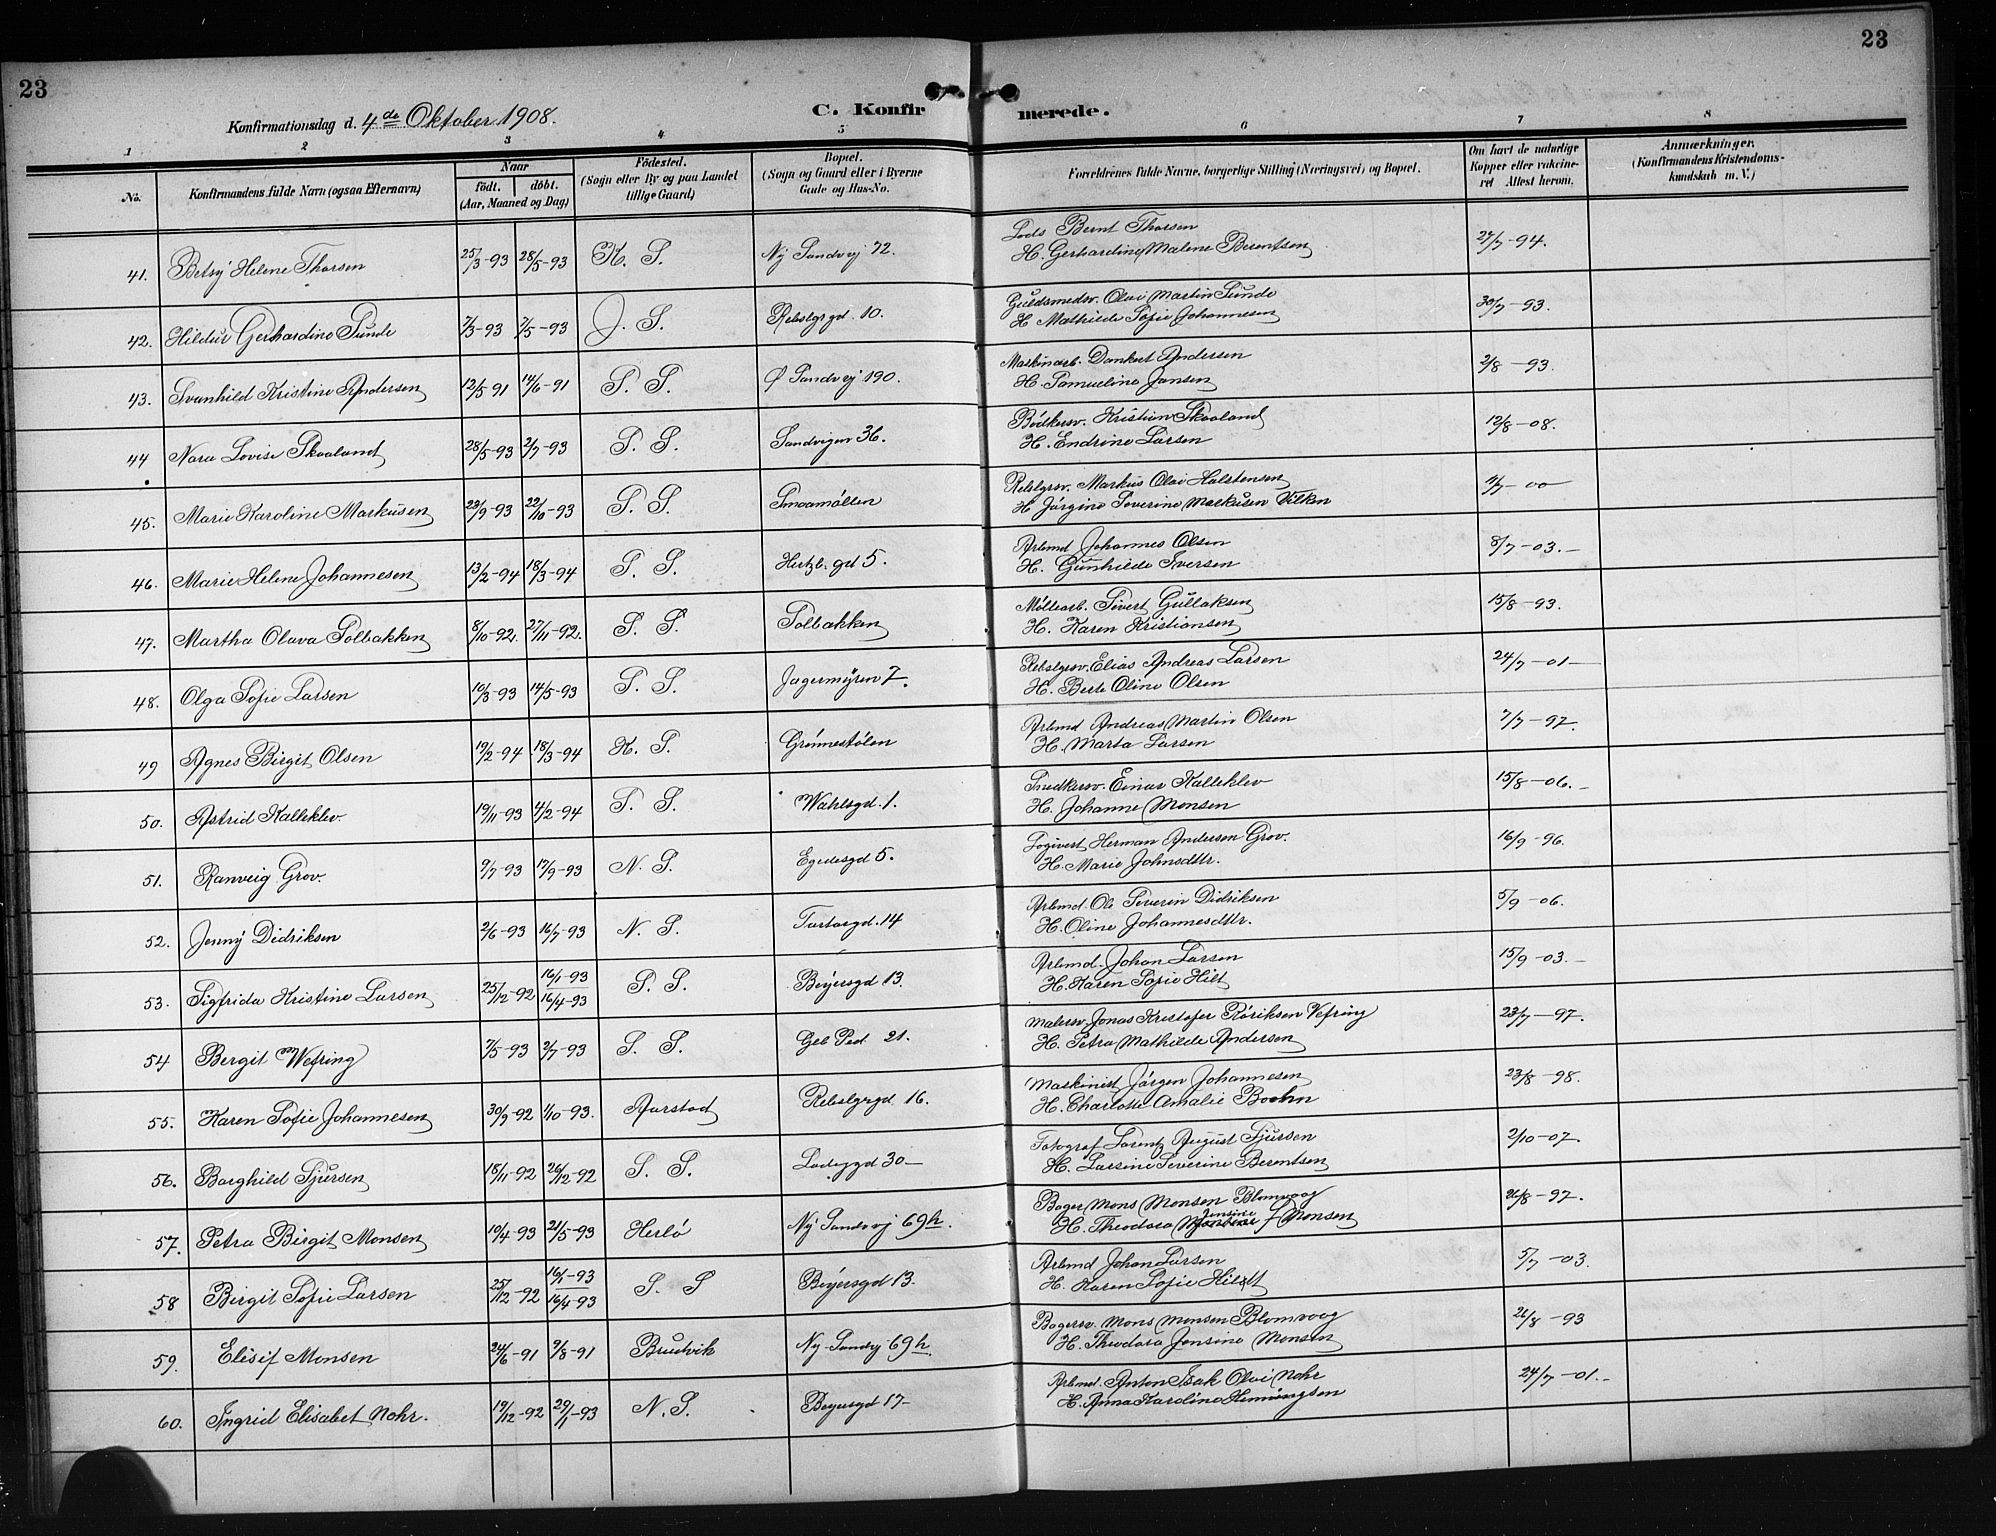 23
23
Konfirmationsdag d. 4de Oktober 1908.
C. Konfirmerede.
1 2 3 4 5 6 7 8
No.
Konfirmandens fulde Navn (ogsaa Efternavn)
Naar
født. døbt.
(Aar, Maaned og Dag)
Fødested.
(Sogn eller By og paa Landet
tillige Gaard)
Bopæl.
(Sogn og Gaard eller i Byerne
Gade og Hus-No.
Forældrenes fulde Navne, borgerlige Stilling (Næringsvei) og Bopæl.
Om havt de naturlige
Kopper eller vakcine-
ret Attest herom.
Anmærkninger.
(Konfirmandens Kristendoms-
kundskab m. V.)
41. Betsy Helene Thorsen 25/3-93 28/5-93 K. S. Ny Sandvej 72. Lods Bernt Thorsen 27/7-94.
H. Gerhardine Malene Berentsen
42. Hildur Gerhardine Sunde 7/3-93 7/5-93 J. S. Rebslgrgd. 10. Guldsmedsv. Olai Martin Sunde 30/7-93.
H Mathilde Sofie Johannesen
43. Svanhild Kristine Andersen 12/5 91 14/6-91 S. S. Ø Sandvej 190. Maskinarb. Dankert Andersen 2/8-93.
H. Samueline Jansen
44 Nora Lovise Skaaland 28/5-93 2/7-93 S. S. Sandvigen 36. Bødkersv. Kristian Skaaland 12/8-08.
H. Endrine Larsen
45. Marie Karoline Markusen 23/9-93 22/10-93 S. S. Smaamøllen Rebslgrsv. Markus Olai Halstensen 4/7-00
H Jørgine Severine Markusen Vilken
46. Marie Helene Johannesen 13/2-94 18/3-94 S. S. Hertzb. gd 5. Arbmd Johannes Olsen 8/7-03.-
H. Gunhilde Iversen
47. Martha Olava Solbakken 8/10-92. 27/11-92. S. S. Solbakken Møllearb. Sivert Gullaksen 15/8-93.
H. Karen Kristiansen
48. Olga Sofie Larsen 10/3-93 14/5-93 S. S. Jægermyren 7. Rebslgrsv. Elias Andreas Larsen 24/7-01-
H. Berte Oline Olsen
49 Agnes Birgit Olsen 19/2-94 18/3-94 K. S. Grønnestølen Arbmd Andreas Martin Olsen 7/7-97.
H. Marta Larsen
50. Astrid Kalleklev. 19/11-93 4/2-94 S. S. Wahlsgd. 1. Snedkersv. Einar Kalleklev 15/8-06.-
H. Johanne Monsen
51. Ranveig Grov. 9/7-93 17/9-93 N. S. Egedesgd 5. Logivert Herman Andersen Grov. 16/9-96.
H. Marie Johnsdttr.
52. Jenny Didriksen 2/6-93 16/7-93 N. S. Tartargd. 14 Arbmd Ole Severin Didriksen 5/9-06.
H. Oline Johannesdttr.
53. Sigfrida Kristine Larsen 25/12-92 16/1-93 16/4-93 S. S. Beyersgd 13. Arbmd. Johan Larsen 15/9-03.-
H. Karen Sofie Hilt
54 Bergit Wefring 7/5-93 2/7-93 S. S. Geb Ped 21. Malersv. Jonas Kristofer Røriksen Vefring 23/7-97.
H. Petra Mathilde Andersen
55. Karen Sofie Johannesen 30/9-92 1/10-93. Aarstad Rebslgrgd 16. Maskinist Jørgen Johannesen 23/8-98.
H. Charlotte Amalie Boehn
56. Borghild Sjursen 18/11-92 26/12-92 S. S. Ladegd 30- Fotograf Lorentz August Sjursen 2/10-07.
H. Larsine Severine Berentsen
57. Petra Birgit Monsen 10/4-93 21/5-93 Herlø Ny Sandvej 69h. Bager Mons Monsen Blomvaag 26/8-97.
H. Theodora Jensine f Monsen
58 Birgit Sofie Larsen 25/12-92 16/1-93 16/4-93 S. S Beyersgd 13. Arbmd Johan Larsen 5/7-03.
H. Karen Sofie Hildt
59. Elisif Monsen 24/6-91 9/8-91 Bruvik Ny Sandvj 69h. Bagersv. Mons Monsen Blomvaag 26/8-93
H. Theodora Jensine Monsen
60. Ingrid Elisabet Nohr. 19/12-92 29/1-93 N. S. Beyersgd 17- Arbmd. Anton Isak Olai Nohr 24/7-01.-
H. Anna Karoline Hemingsen